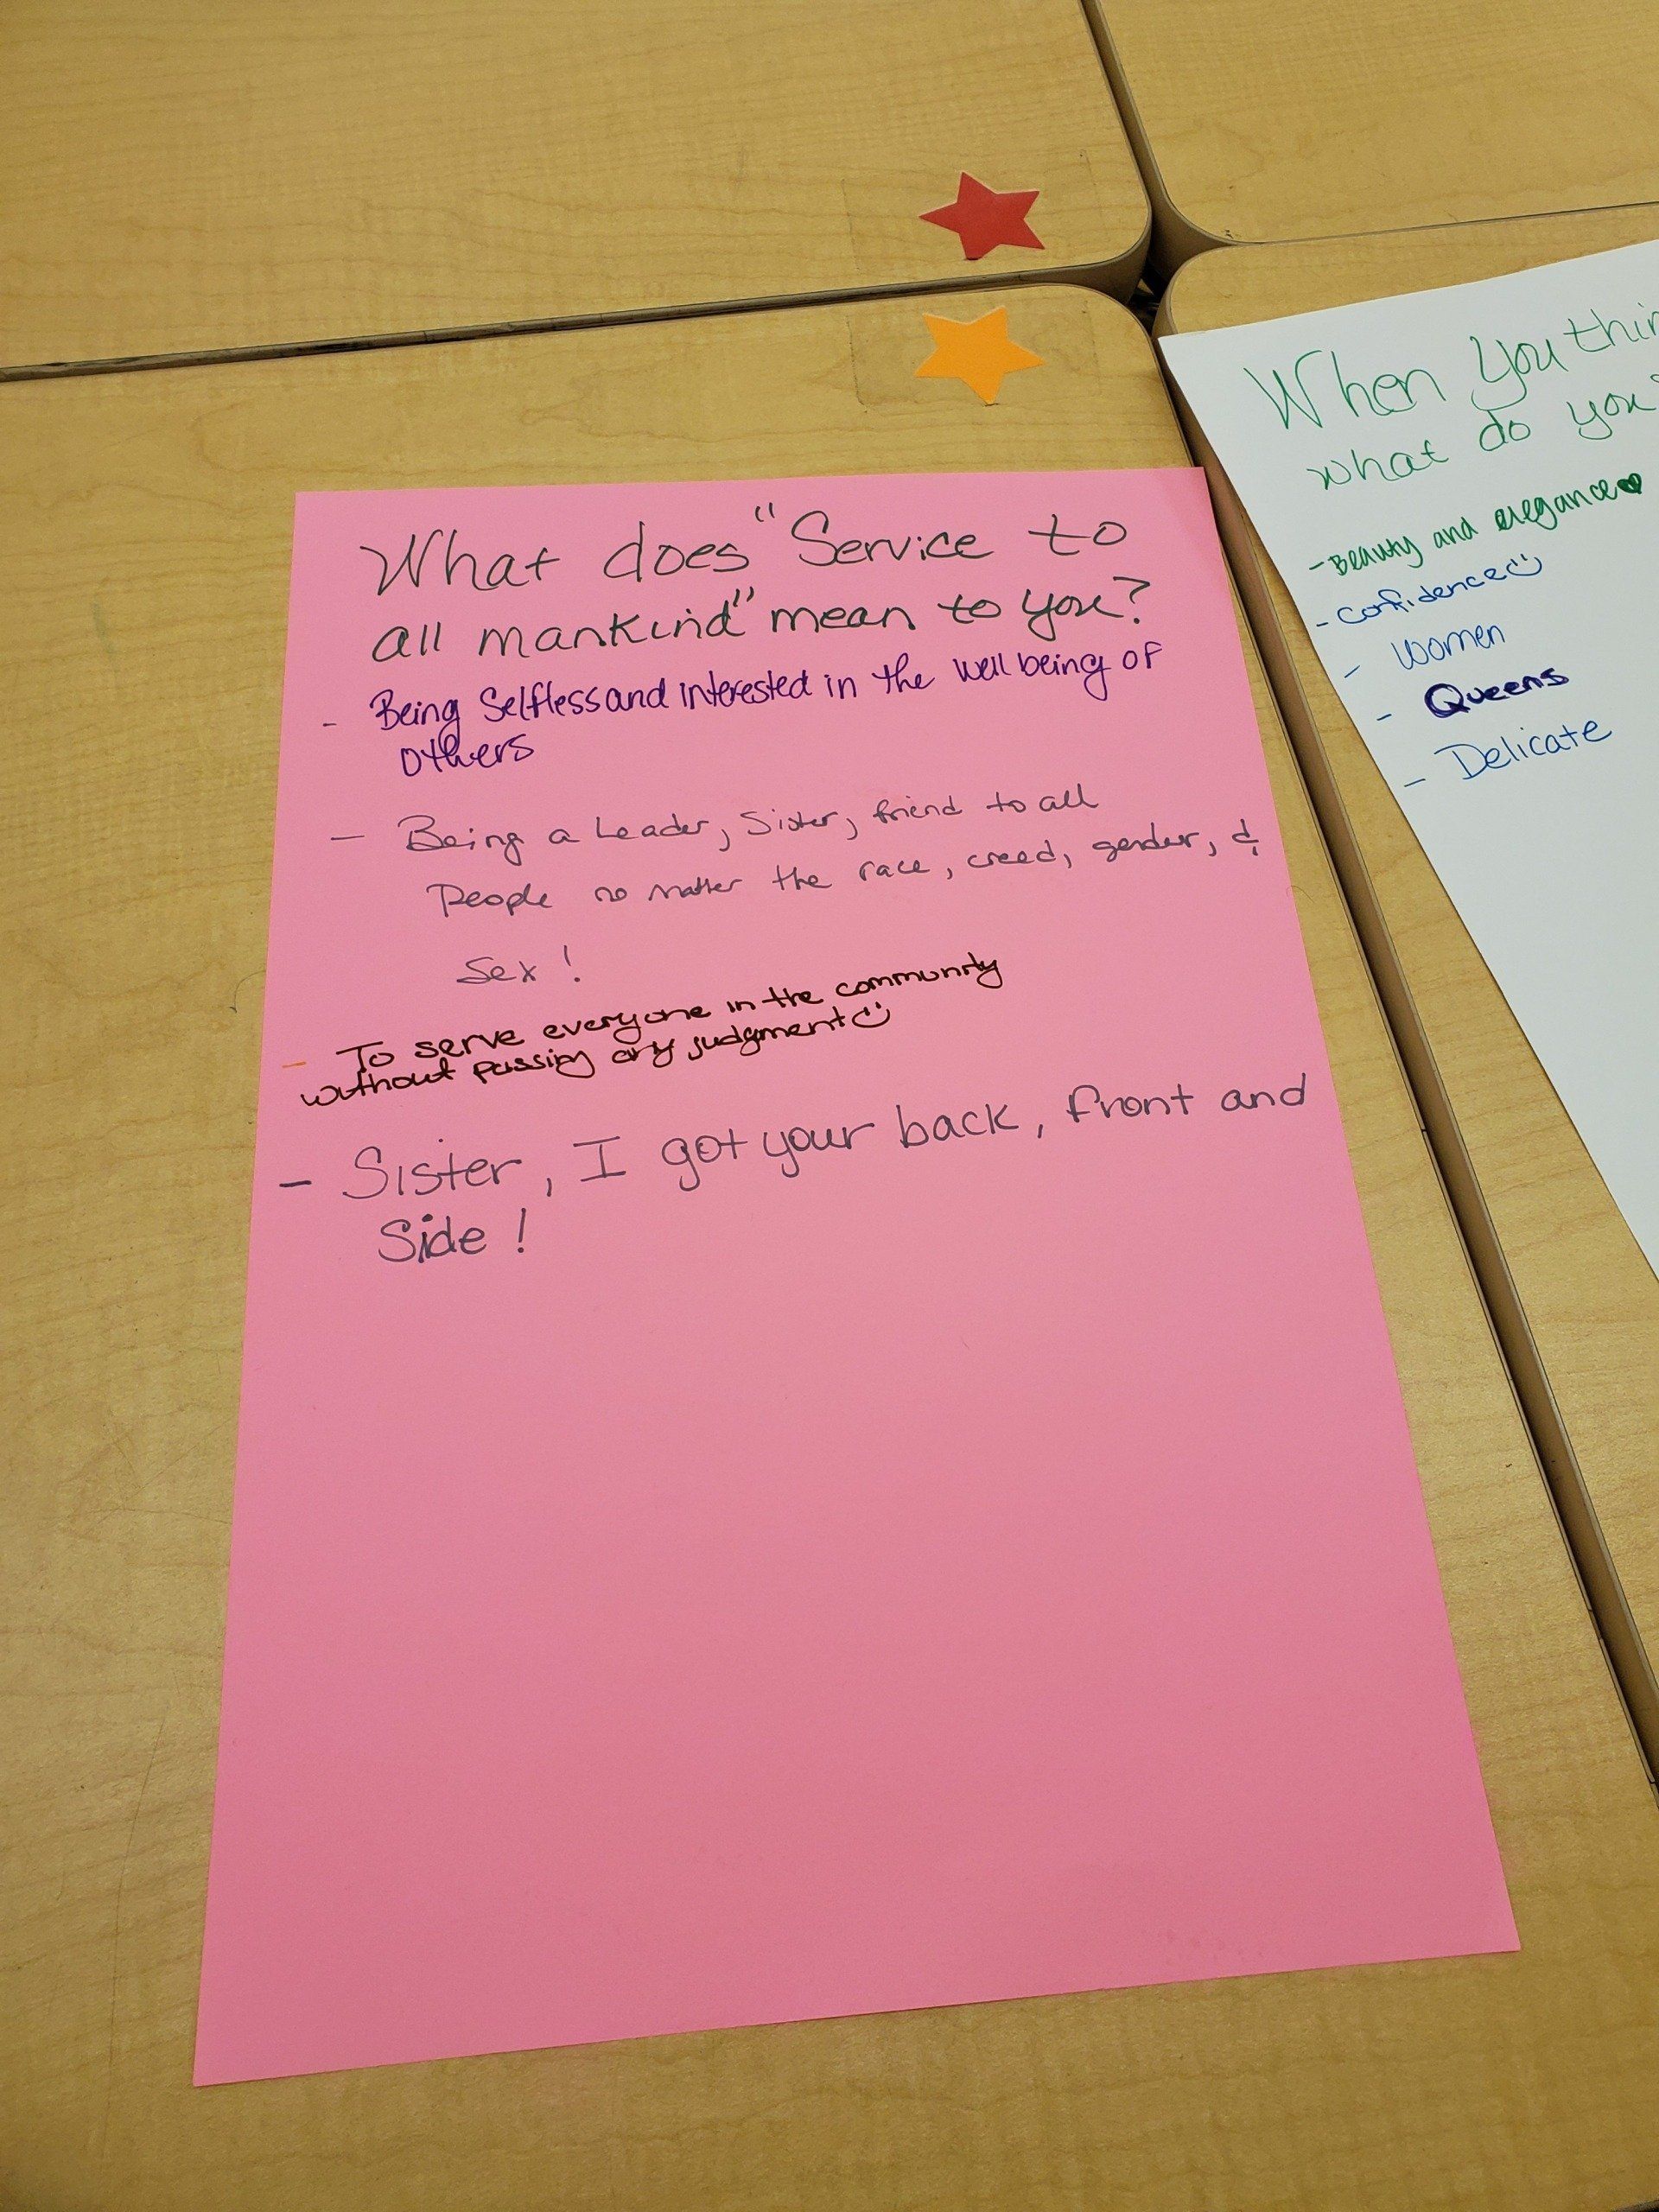 What does "Service to
all mankind" mean to you?
- Being Selfless and interested in the well being of
others
- Being a Leader, Sister, friend to all
People no matter the race, creed, gender, &
Sex!
- To serve everyone in the community
without passing any judgment
- Sister, I got your back, front and
Side!
When You
what do you
- Beauty and elegance
- confidence
- Women
- Queens
- Delicate